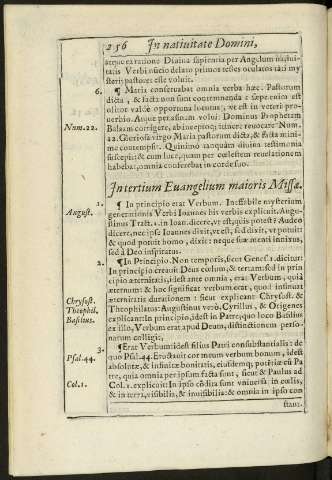 256 In natiuitate Domini,
atque ea ratione Diuina sapientia per Angelum natiui-
tatis Verbi nuncio delato primos testes oculatos tāti my-
sterij pastores esse voluit.
6. ¶ Maria conseruabat omnia verba hæc. Pastorum
dicta, & facta non sunt contemnenda: sæpe enim est
olitor valdè opportuna locutus, vt est in veteri pro-
Num.22. uerbio. Atque per asinam voluit Dominus Prophetam
Balaam corrigere, ab incepto; itinere reuocare Num.
22. Gloriosa virgo Maria pastorum dicta, & facta mini-
mè contempsit. Quinimò tanquàm diuina testimonia
suscepit; & cum luce, quam per cælestem reuelationem
habebat, omnia conferebat in corde suo.
In tertium Euangelium maioris Missæ.
1. ¶ In principio erat Verbum. Ineffabile mysterium
August. generationis Verbi Ioannes his verbis explicuit. Augus-
tinus Tract. 1. in Ioan. dicere, vt est, quis potest? Audeo
dicere, nec ipse Ioannes dixit, vt est, sed dixit, vt potuit:
& quod potuit homo, dixit: neque suæ menti innixus,
sed à Deo inspiratus.
2. ¶ In Principio. Non temporis, sicut Genes. 1. dicitur:
In principio creauit Deus cœlum, & terram: sed in prin-
cipio æternitatis, idest ante omnia, erat Verbum, quia
æternum: & hæc significat verbum erat, quod insinuat
Chrysost. æternitatis durationem: sicut explicant Chrysost. &
Theophil. Theophilatus: Augustinus verò. Cyrillus, & Origenes
Basilius. explicant In principio, idest in Patre, quo loco Basilius
ex illo, Verbum erat apud Deum, distinctionem perso-
narum colligit.
3. ¶ Erat Verbum idest filius Patri consubstantialis: de
Psal.44. quo Psal. 44. Eructauit cor meum verbum bonum, idest
absolutæ, & infinitæ bonitatis, eiusdemq; potētiæ cū Pa-
tre, quia omnia per ipsum facta sunt, sicut & Paulus ad
Col.1. Col. 1. explicuit: In ipso cōdita sunt vniuersa in cœlis,
& in terra, visibilia, & inuisibilia: & omnia in ipso con-
stant.